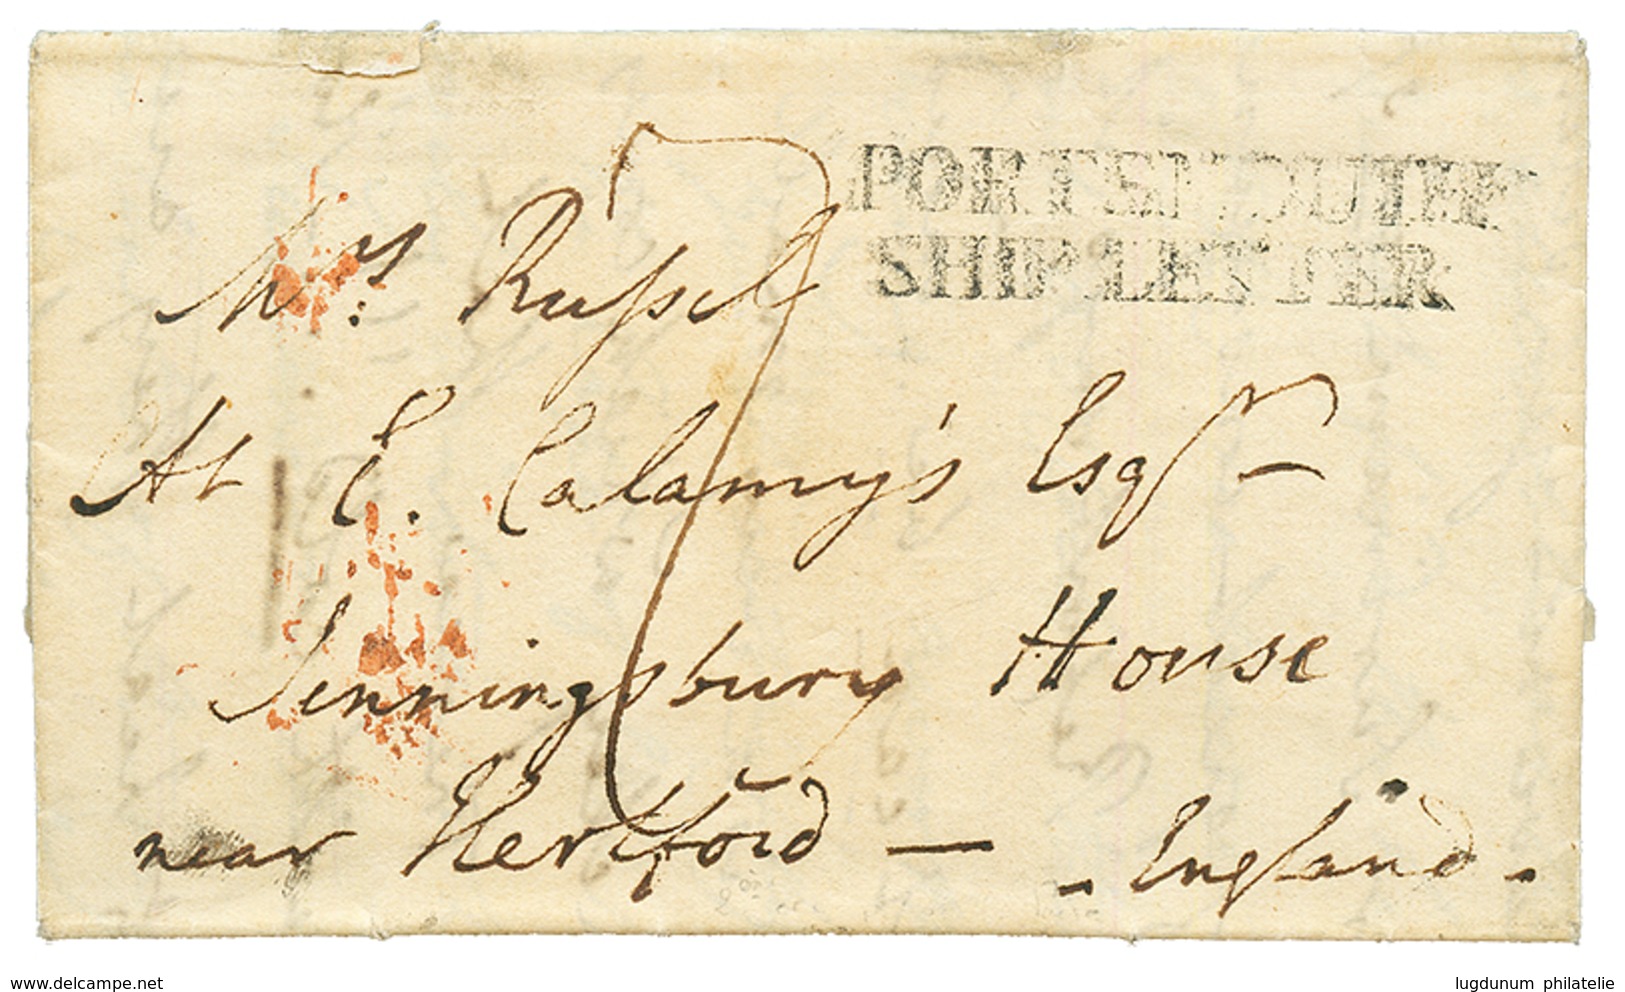 PORTSMOUTH
SHIP LETTER
Mrs. Russel
At E. Calamy's Esqr
Jenningsbury House
near Hertford — - England -
www.delcampe.net
lugdunum philatelie